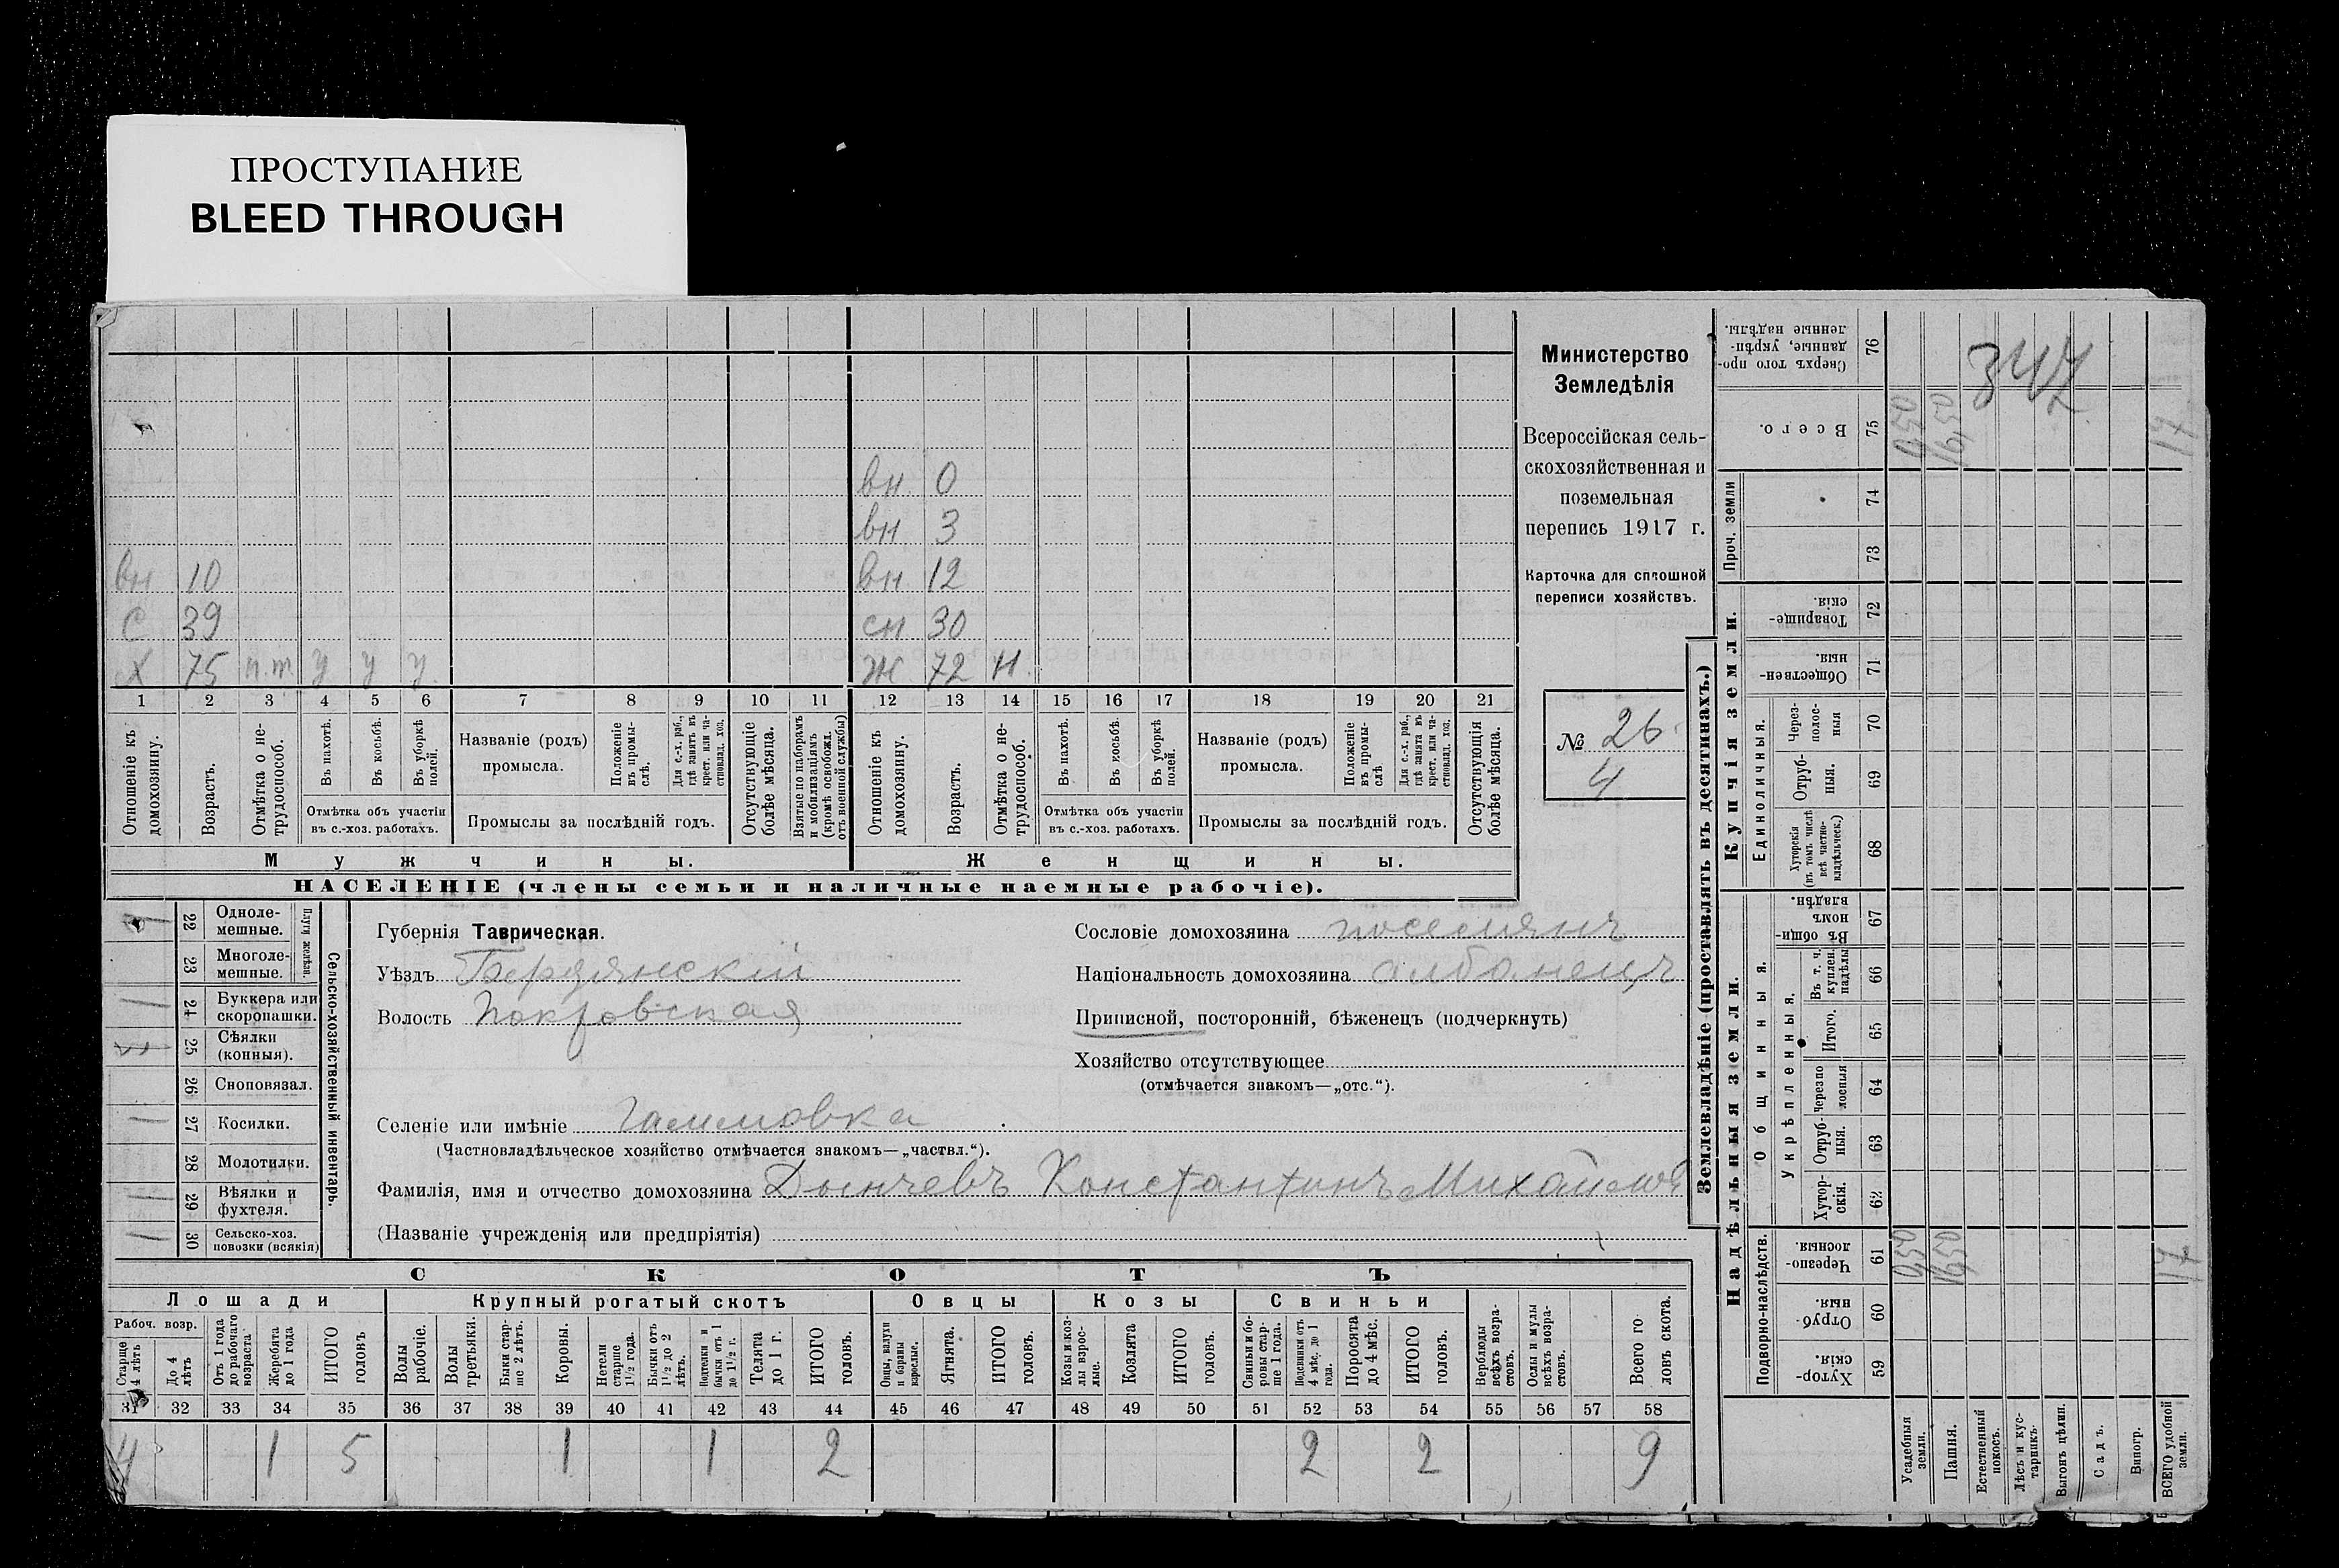 ПРОСТУПАНИЕ
BLEED THROUGH
вн 0
вн 3
вн 10 вн 12
с 39 сн 30
х 75 п.т. у у у. ж 72 н.
1 2 3 4 5 6 7 8 9 10 11 12 13 14 15 16 17 18 19 20 21
Отношеніе къ домохозяину.
Возрастъ.
Отмѣтка о не-трудоспособ.
Въ пахотѣ.
Въ косьбѣ.
Въ уборкѣ полей.
Отмѣтка объ участіи
въ с.-хоз. работахъ.
Названіе (родъ)
промысла.
Положеніе въ промы-слѣ.
Для с.-х. раб., гдѣ занятъ въ крест. или ча-стновлад. хоз.
Промыслы за послѣдній годъ.
Отсутствующіе болѣе мѣсяца.
Взятые по наборамъ и мобилизаціямъ (кромѣ освобожд. отъ военной службы)
Отношеніе къ домохозяину.
Возрастъ.
Отмѣтка о не-трудоспособ.
Въ пахотѣ.
Въ косьбѣ.
Въ уборкѣ полей.
Отмѣтка объ участіи
въ с.-хоз. работахъ.
Названіе (родъ)
промысла.
Положеніе въ промы-слѣ
Для с.-х. раб., гдѣ занята въ крест. или ча-стновлад. хоз.
Промыслы за послѣдній годъ.
Отсутствующія болѣе мѣсяца.
Мужчины.
Женщины.
НАСЕЛЕНІЕ (члены семьи и наличные наемные рабочіе).
Министерство
Земледѣлія
Всероссійская сель-
скохозяйственная и
поземельная
перепись 1917 г.
Карточка для сплошной
переписи хозяйствъ.
№ 26
4
22 Одноле-мешные.
23 Многоле-мешные.
Плуги желѣзн.
24 Буккера или скоропашки.
25 Сѣялки (конныя).
26 Сноповязал.
27 Косилки.
28 Молотилки.
29 Вѣялки и фухтеля.
30 Сельско-хоз. повозки (всякія)
Сельско-хозяйственный инвентарь.
Губернія Таврическая.
Уѣздъ Бердянскій
Волость Покровская
Селеніе или имѣніе Гаммовка
(Частновладѣльческое хозяйство отмѣчается знакомъ—„частвл.“).
Фамилія, имя и отчество домохозяина Дынчевъ Константинъ Михайлов
(Названіе учрежденія или предпріятія)
Сословіе домохозяина поселянъ
Національность домохозяина албанецъ
Приписной, посторонній, бѣженецъ (подчеркнуть)
Хозяйство отсутствующее
(отмѣчается знакомъ—„отс.“).
СКОТЪ
Лошади
Крупный рогатый скотъ
Овцы
Козы
Свиньи
Рабоч. возр.
Старше 4 лѣтъ
До 4 лѣтъ
Отъ 1 года до рабочаго возраста
Жеребята до 1 года
ИТОГО головъ
Волы рабочіе.
Волы третьяки.
Быки стар-ше 2 лѣтъ.
Коровы.
Нетели старше 1½ года.
Бычки отъ 1½ до 2 лѣтъ.
Подтелки и бычки отъ 1 до 1½ г.
Телята до 1 г.
ИТОГО головъ.
Овцы, валухи и бараны взрослые.
Ягнята.
ИТОГО головъ.
Козы и коз-лы взрос-лые.
Козлята
ИТОГО головъ.
Свиньи и бо-ровы стар-ше 1 года.
Подсвинки отъ 4 мѣс. до 1 года.
Поросята до 4 мѣс.
ИТОГО головъ.
Верблюды всѣхъ возра-стовъ.
Ослы и мулы всѣхъ возра-стовъ.
Всего го-ловъ скота.
31 32 33 34 35 36 37 38 39 40 41 42 43 44 45 46 47 48 49 50 51 52 53 54 55 56 57 58
4 1 5 1 1 2 2 2 9
Землевладѣніе (проставлять въ десятинахъ.)
Надѣльныя земли.
Купчія земли.
Проч. земли
Подворно-наслѣдств.
Общинныя.
Укрѣпленныя.
Единоличныя.
Сверхъ того про-данные, укрѣп-ленные надѣлы. 76
Всего. 75
74
73
Товарище-скія. 72
Обществен-ныя. 71
Через-полос-ныя 70
Отруб-ныя. 69
Хуторскія (въ томъ числѣ всѣ частно-владѣльческ.) 68
Въ общин-номъ владѣн. 67
Въ т. ч. куплен. надѣлы 66
Итого. 65
Черезпо-лосныя 64
Отруб-ныя. 63
Хутор-скія. 62
Черезпо-лосныя. 61
Отруб-ныя. 60
Хутор-скія. 59
Усадебныя земли.
Пашня.
Естественный покосъ.
Лѣсъ и кус-тарникъ.
Выгонъ цѣлин.
Садъ.
Виногр.
ВСЕГО удобной земли.
0,50 16,50 17
0,50 16,50 17
347